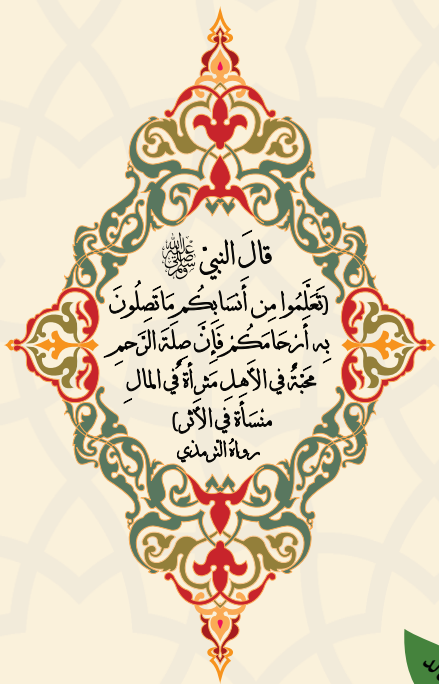 قالَ النبيْ ﷺ
(تَعَلَّمُوا مِن أَنسَابِكُم مَا تَصِلُونَ
بِه أَرحَامَكُمْ فَإِنَّ صِلَةَ الرَّحِمِ
مَحَبَّةٌ في الأَهلِ مَثرَأةٌ في المَالِ
مَنْسَأَة في الأثَر)
رواهُ الترمذي